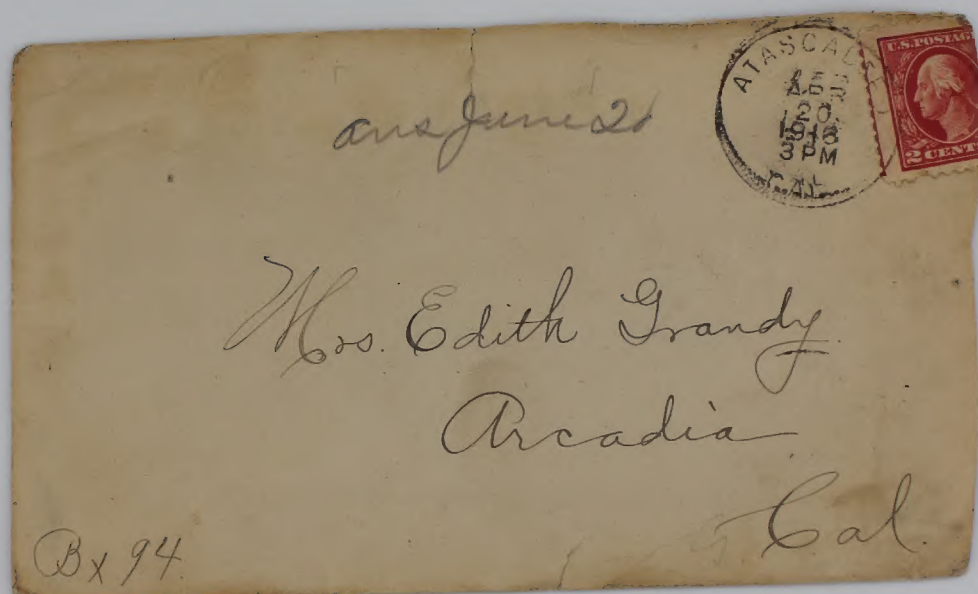 ans June 20
ATASCADERO
APR
20
1918
3 PM
CAL.
U.S. POSTAGE
2 CENTS
Mrs. Edith Grandy
Arcadia
Cal.
Bx 94.